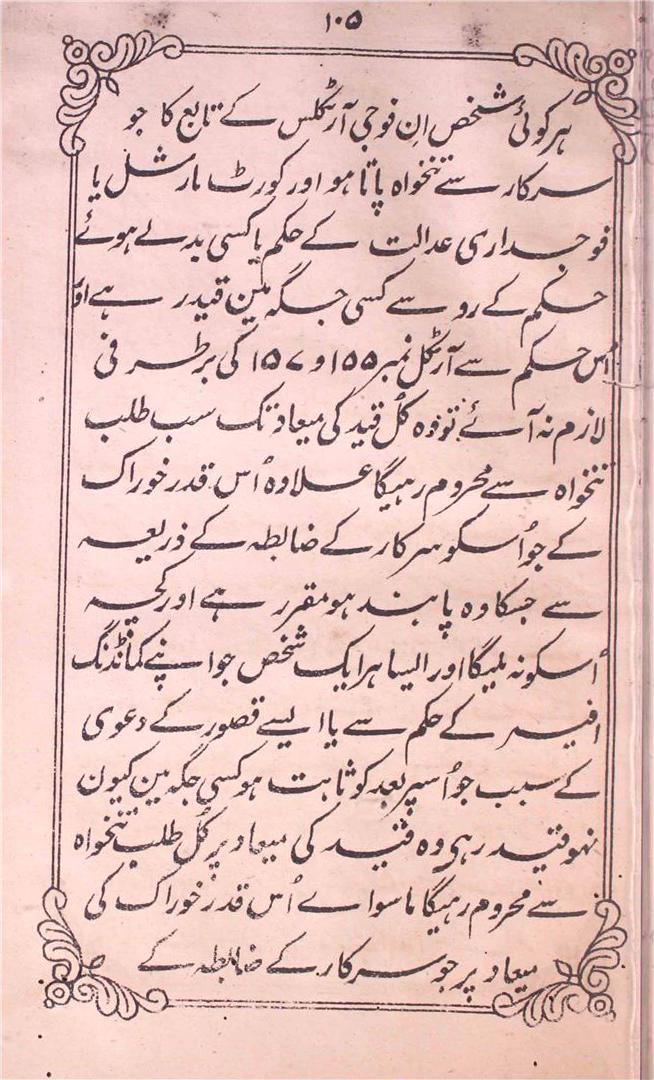 ۱۰۵
ہر کوئی شخص اِن فوجی آرٹکلس کے تابع کا جو
سرکار سے تنخواہ پاتا ہو اور کورٹ مارشل یا
فوجداری عدالت کے حکم یا کسی بدلے ہوئے
حکم کے رو سے کسی جگہ مین قید رہے اور
اُس حکم سے آرٹکل نمبر ۱۵۵ و ۱۵۷ کی برطرفی
لازم نہ آئے تو وہ کُل قید کی میعاد تک سب طلب
تنخواہ سے محروم رہیگا علاوہ اُس قدر خوراک
کے جو اُسکو سرکار کے ضابطہ کے ذریعہ
سے جسکا وہ پابند ہو مقرر ہے اور کچہ
اُسکو نہ ملیگا اور ایسا ہر ایک شخص جو اپنے کمانڈنگ
افیسر کے حکم سے یا ایسے قصور کے دعوی
کے سبب جو اُسپر بعد کو ثابت ہو کسی جگہ مین کیون
نہو قید رہی وہ قید کی میعاد پر کُل طلب تنخواہ
سے محروم رہیگا ماسواے اُس قدر خوراک کی
میعاد پر جو سرکار کے ضابطہ کے